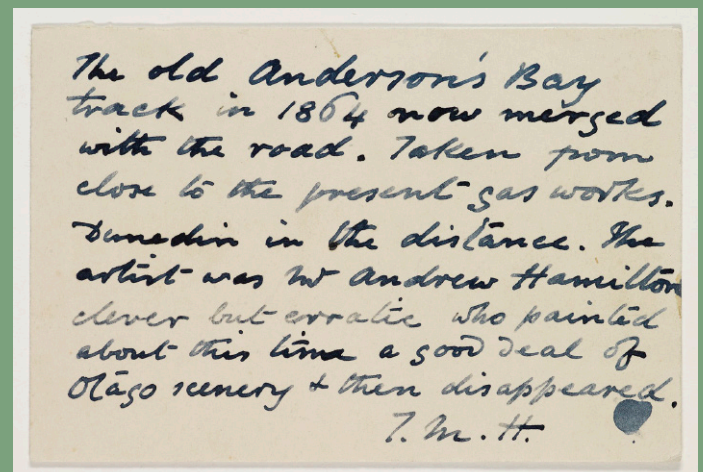 The old Anderson's Bay
track in 1864 now merged
with the road. Taken from
close to the present gas works.
Dunedin in the distance. The
artist was Mr Andrew Hamilton
clever but erratic who painted
about this time a good deal of
Otago scenery & then disappeared.
T. M. H.